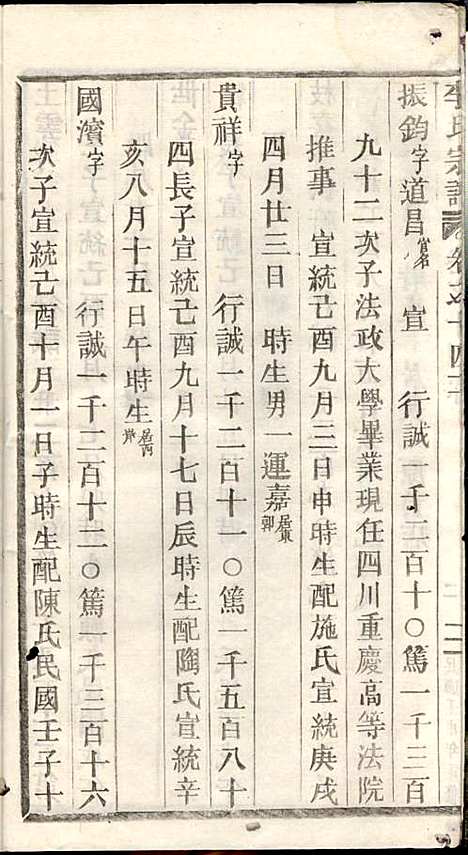 李氏宗譜
振鈞字道昌官名仁宣 行誠一千二百十〇篤一千三百
九十二次子法政大學畢業現任四川重慶高等法院
推事 宣統己酉九月三日申時生配施氏宣統庚戌
四月廿三日 時生男一運嘉居重
貴祥字 行誠一千二百十一〇篤一千五百八十
四長子宣統己酉九月十七日辰時生配陶氏宣統辛
亥八月十五日午時生
國濱字 行誠一千二百十二〇篤一千三百十六
次子宣統己酉十月一日子時生配陳氏民國壬子十